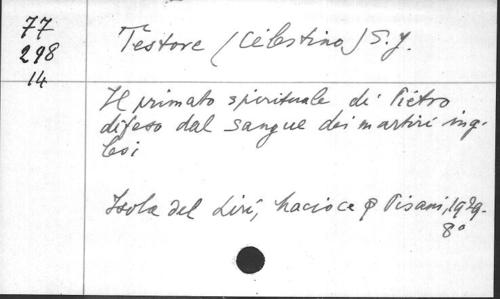 77
298
14
Testore (Celestino) S.J.
Il primato spirituale di Pietro
difeso dal sangue dei martiri ing-
lesi
Isola del Liri, Macioce & Pisani, 1929.
8°